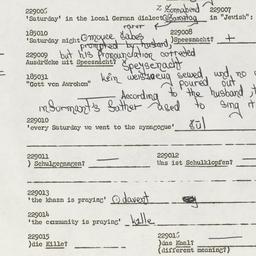 2 Sonnabend
229006 229007
'Saturday' in the local German dialect Samstag in "Jewish":
rarer
185010 229008
'Saturday night' )Speesnacht? +
prompted by husband,
229009 but his pronunciation corrected
Ausdrücke mit Speesnacht? Speysenacht
185031 kein weisszeig sewed, und no
"Gott von Avrohom" poured out
According to the husband, it
informant's father used to sing it
229010
'every Saturday we went to the synagogue' šūl
229011 229012
) Schulgegangen? Was ist Schulklopfen?
229013
'the khazn is praying' davent
229014
'the community is praying' kille
229015 229016
)die Kille? )das Kaal?
(different meaning?)